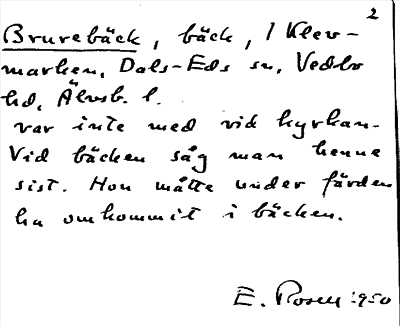 2
Brurebäck, bäck, i Klev-
marken, Dals-Eds sn, Vedbo
hd, Älvsb. l.
var inte med vid kyrkan.
Vid bäcken såg man henne
sist. Hon måtte under färden
ha omkommit i bäcken.
E. Rosell 1950